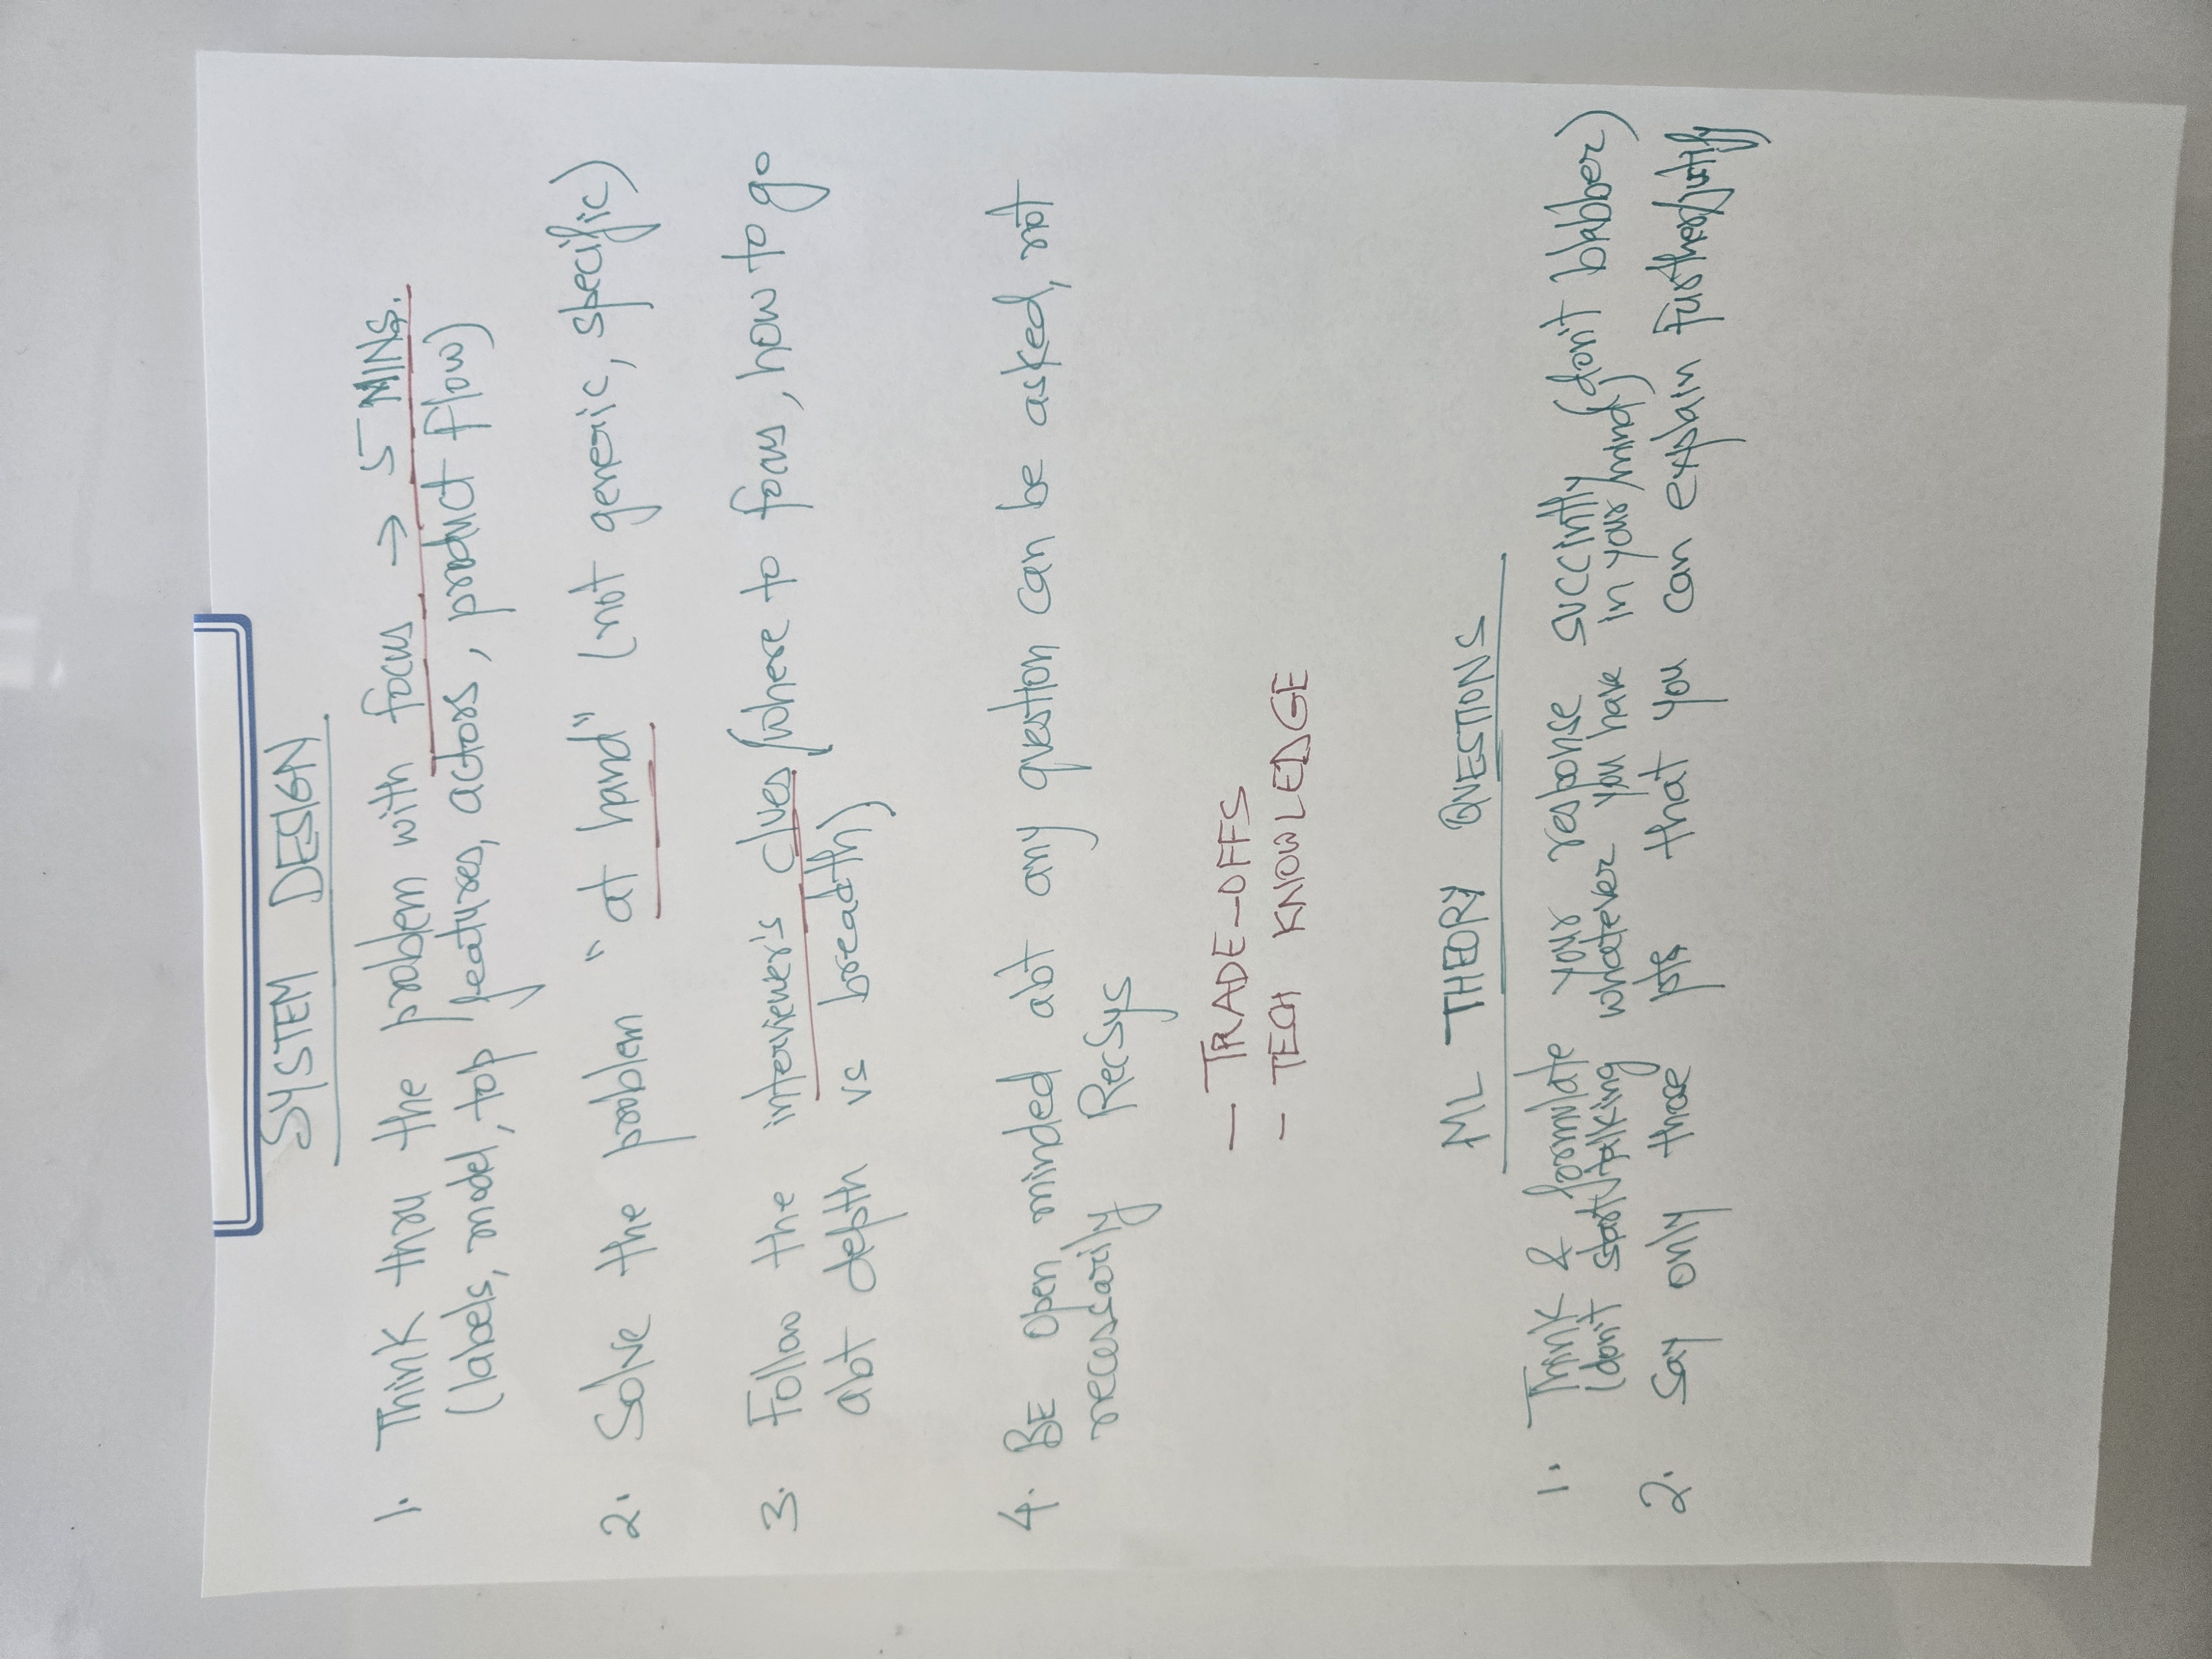 SYSTEM DESIGN
1. Think thru the problem with focus → 5 MINS.
(labels, model, top features, actors, product flow)
2. Solve the problem "at hand" (not generic, specific)
3. Follow the interviewer's clues (where to focus, how to go
abt depth vs breadth)
4. BE open minded abt any question can be asked, not
necessarily RecSys
- TRADE-OFFS
- TECH KNOWLEDGE
ML THEORY QUESTIONS
1. Think & formulate your response succintly (don't blabber)
(don't start talking whatever you have in your mind)
2. Say only those pts that you can explain further/justify